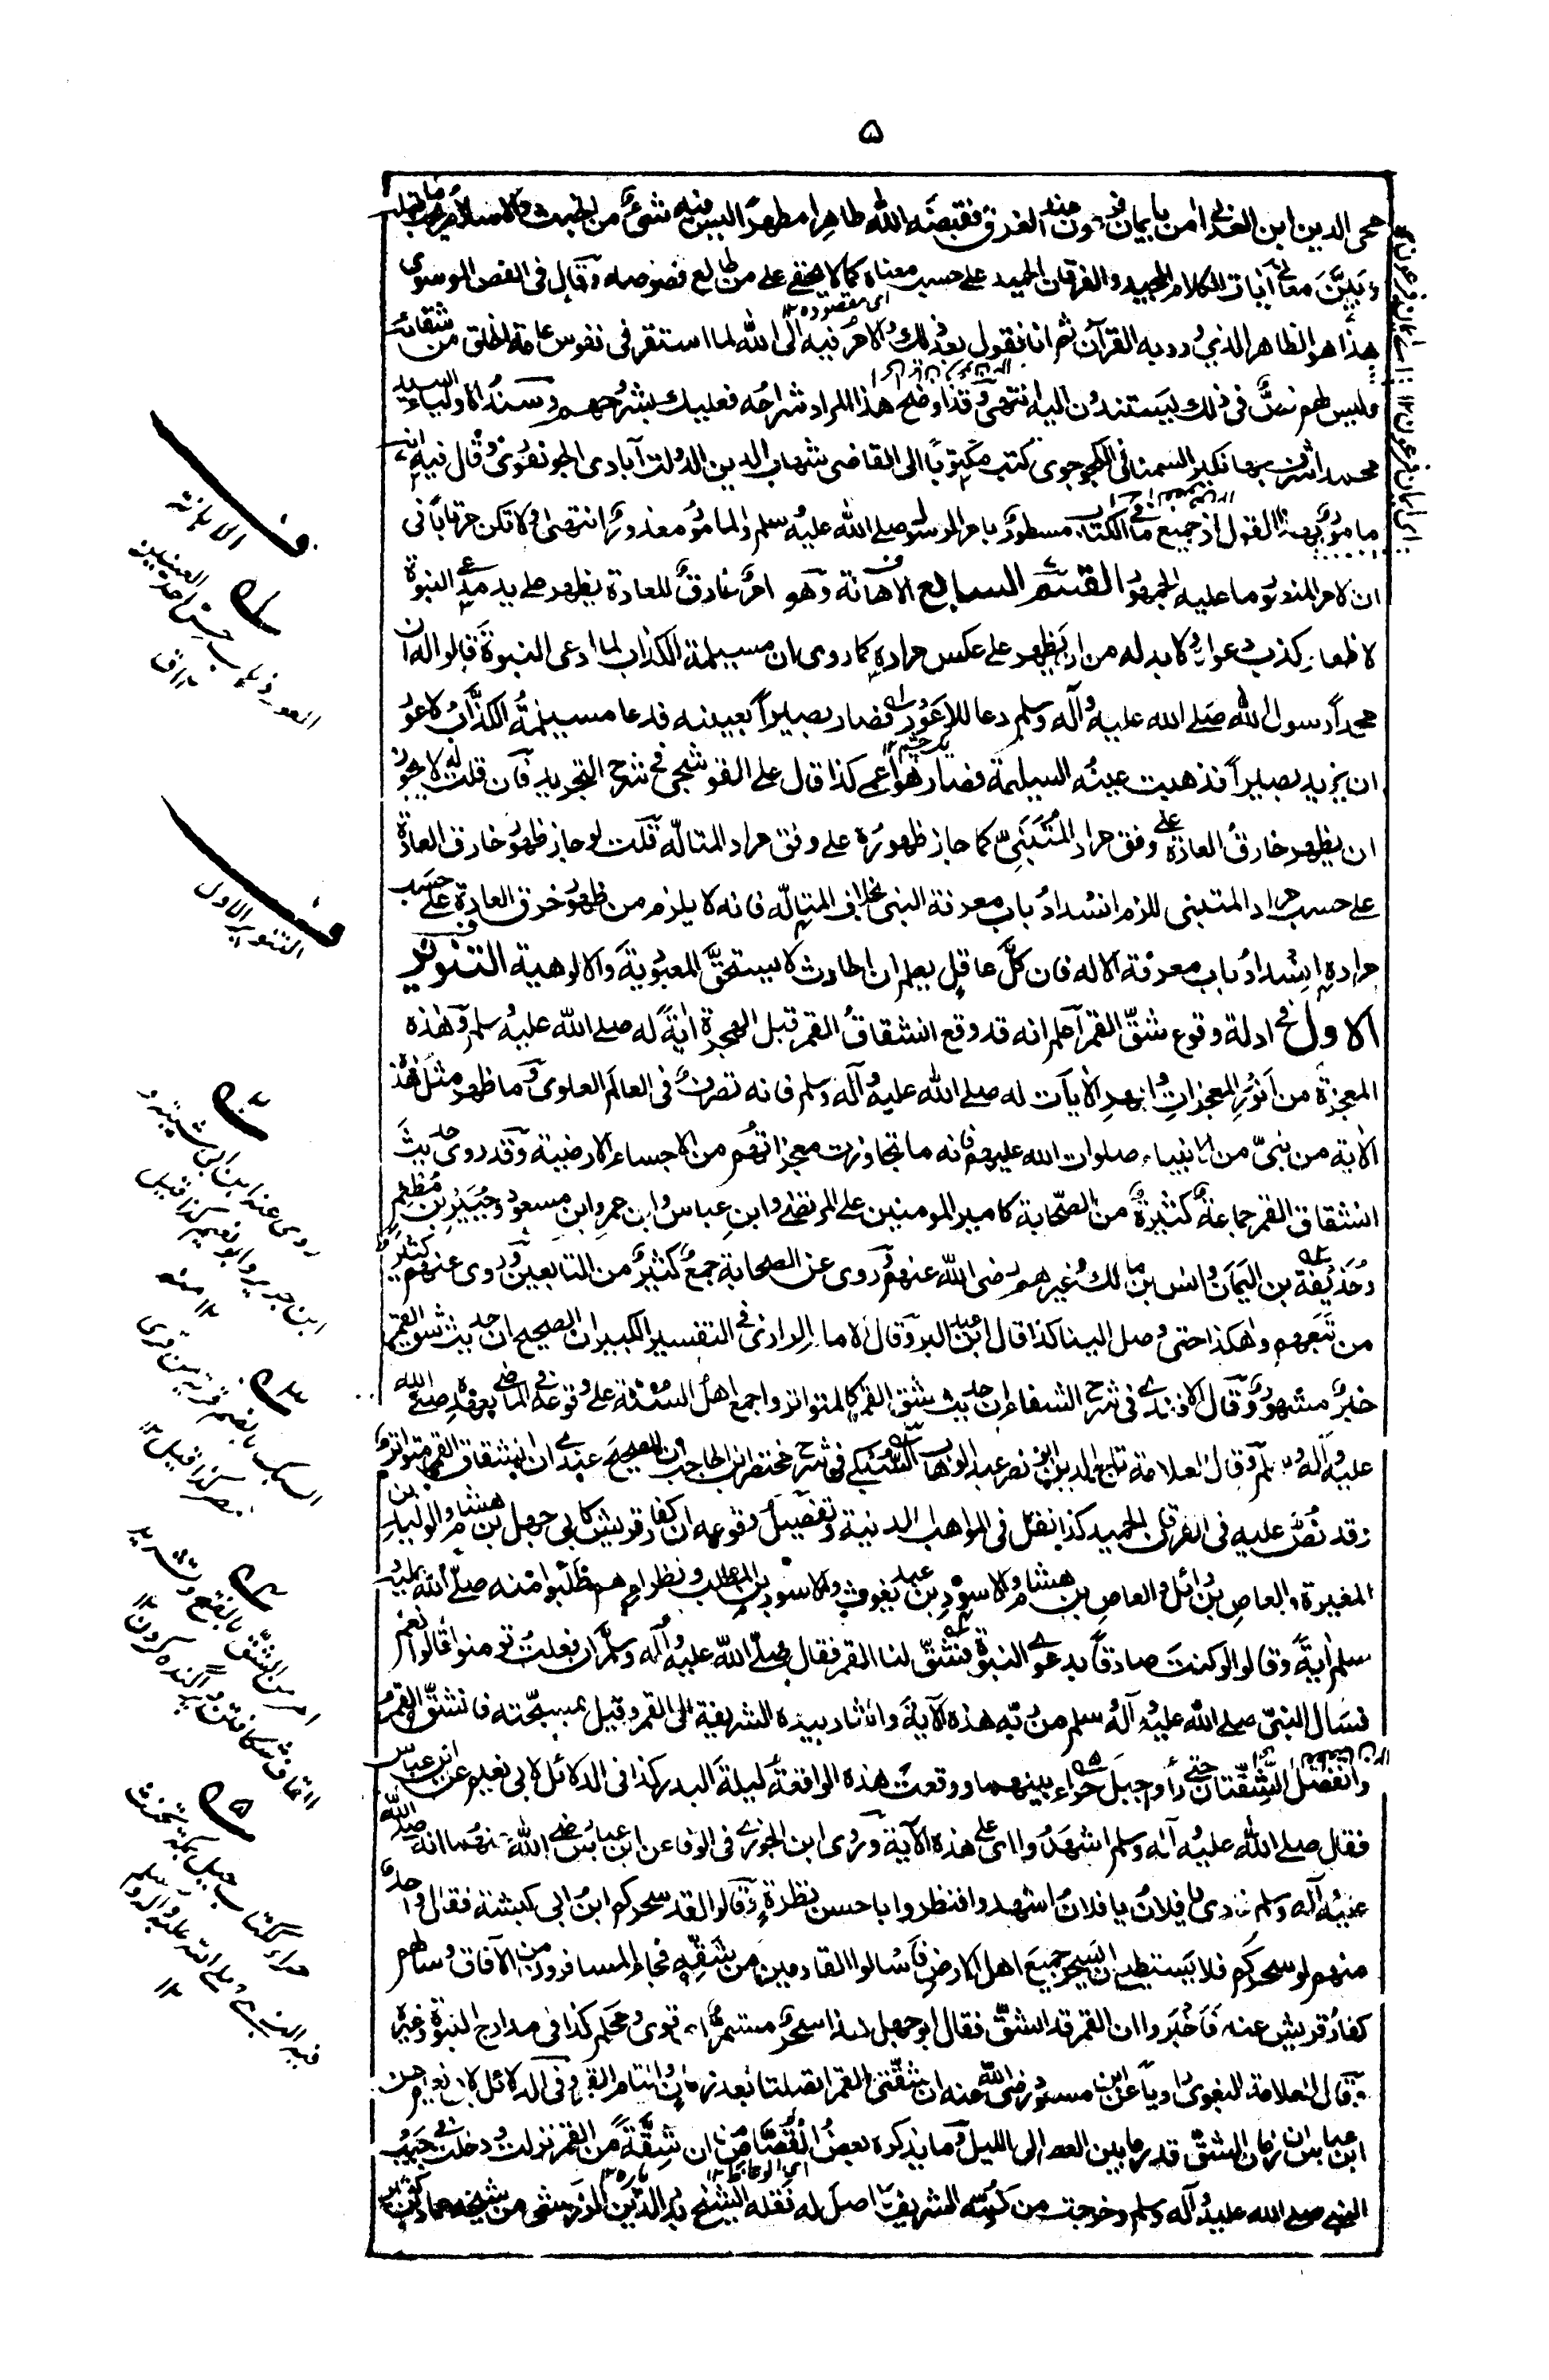 ۵
محى الدين ابن العربى امن بايمان فرعون عند الغرق فقبضه الله طاهرا مطهرا ليس فيه شئ من الخبث والاسلام يجب ما قبله
وبين معانى آيات الكلام المجيد والفرقان الحميد على حسب معناه كما لا يخفى على من طالع فصوصه وقال فى الفص الموسوى
هذا هو الظاهر الذى ورد به القرآن ثم انا نقول بعد ذلك والامر فيه الى الله لما استقر فى نفوس عامة الخلق من شقائه
وليس لهم نص فى ذلك يستندون اليه انتهى وقد اوضح هذا المراد شراحه فعليك بشروحهم وسند الاولياء السيد
محمد اشرف جهانكير السمنانى الكچوچوى كتب مكتوبا الى القاضى شهاب الدين الدولت آبادى الجونفورى وقال فيه انى
مامور بهذا القول اذ جميع ما فى الكتاب مسطور بامر الرسول صلى الله عليه وسلم والمامور معذور انتهى ولا تكن مرتابا فى
ان الامر المندوب ما عليه الجمهور القسم السابع الاهانة وهو امر خارق للعادة يظهر على يد مدعى النبوة
لاظهار كذب دعواه ولا بد له من ان يظهر على عكس مراده كما روى ان مسيلمة الكذاب لما ادعى النبوة قالوا له ان
محمدا رسول الله صلى الله عليه وآله وسلم دعا للاعور فصار بصيرا بعينه فدعا مسيلمة الكذاب لاعور
ان يزيد بصيرا فذهبت عينه السليمة فصار هو اعمى كذا قال على القوشجى فى شرح التجريد فان قلت له لا يجوز
ان يظهر خارق العادة على وفق مراد المتنبى كما جاز ظهوره على وفق مراد المتاله قلت لو جاز ظهور خارق العادة
على حسب مراد المتنبى للزم انسداد باب معرفة النبى بخلاف المتاله فانه لا يلزم من ظهور خرق العادة على حسب
مراده انسداد باب معرفة الاله فان كل عاقل يعلم ان الحادث لا يستحق المعبودية والالوهية التنوير
الاول فى ادلة وقوع شق القمر اعلم انه قد وقع انشقاق القمر قبل الهجرة آية له صلى الله عليه وسلم وهذه
المعجزة من انور المعجزات وابهر الآيات له صلى الله عليه وآله وسلم فانه تصرف فى العالم العلوى وما ظهر مثل هذه
الآية من نبى من الانبياء صلوات الله عليهم فانه ما تجاوزت معجزاتهم من الاجساء الارضية وقد روى حديث
انشقاق القمر جماعة كثيرة من الصحابة كامير المومنين على المرتضى وابن عباس وابن عمر وابن مسعود وجبير بن مطعم
وحذيفة بن اليمان وانس بن مالك وغيرهم رضى الله عنهم وروى عن الصحابة جمع كثير من التابعين وروى عنهم كثير
من تبعهم وهكذا حتى وصل الينا كذا قال ابن عبد البر وقال الامام الرازى فى التفسير الكبير ان الصحيح ان حديث شق القمر
خبر مشهور وقال الافندى فى شرح الشفاء ان حديث شق القمر كالمتواتر واجمع اهل السنة على وقوعه فى الماضى بعهده صلى الله
عليه وآله وسلم وقال العلامة تاج الدين ابو نصر عبد الوهاب السبكى فى شرح مختصر ابن الحاجب ان الصحيح عندى ان انشقاق القمر متواتر
وقد نص عليه فى الفرقان الحميد كذا نقل فى المواهب الدنية وتفصيل وقوعه ان كفار قريش كابى جهل بن هشام والوليد بن
المغيرة والعاص بن وائل والعاص بن هشام والاسود بن عبد يغوث والاسود بن المطلب ونظرائهم طلبوا منه صلى الله عليه
وسلم آية وقالوا لو كنت صادقا بدعوى النبوة فشق لنا القمر فقال صلى الله عليه وآله وسلم ان فعلت تومنوا قالوا نعم
فسال النبى صلى الله عليه وآله وسلم من ربه هذه الآية واشار بيده الشريفة الى القمر وقيل بمسبحته فانشق القمر
وانفصل الشقتان حتى رأوا جبل حراء بينهما ووقعت هذه الواقعة ليلة البدر كذا فى الدلائل لابى نعيم عن ابن عباس
فقال صلى الله عليه وآله وسلم اشهدوا اى على هذه الآية وروى ابن الجوزى فى الوفا عن ابن عباس رضى الله عنهما انه صلى الله
عليه وآله وسلم نادى يا فلان يا فلان اشهدوا فنظروا باحسن نظرة وقالوا لقد سحركم ابن ابى كبشة فقال واحد
منهم لو سحركم فلا يستطيع ان يسحر جميع اهل الارض فاسالوا القادمين من شقة فجاء المسافرون من الآفاق وسالهم
كفار قريش عنه فاخبروا ان القمر قد انشق فقال ابو جهل هذا سحر مستمر اى قوى ومحكم كذا فى مدارج النبوة وغيره
وقال العلامة البغوى راويا عن ابن مسعود رضى الله عنه ان شقتى القمر اتصلتا بعد زمان والتام القمر وفى الدلائل لابى نعيم عن
ابن عباس ان زمان الشق قدر ما بين العصر الى الليل وما يذكره بعض القصاص من ان شقة من القمر نزلت ودخلت فى جيب
النبى صلى الله عليه وآله وسلم وخرجت من كمه الشريف لا اصل له نقله الشيخ بدر الدين الزركشى من شيخه عماد بن كثير
ف
الاهانة
ف
التنوير الاول
روى عنه ابن ابى شيبة و
ابن جرير وابو نعيم كذا قيل
۱۲ منه